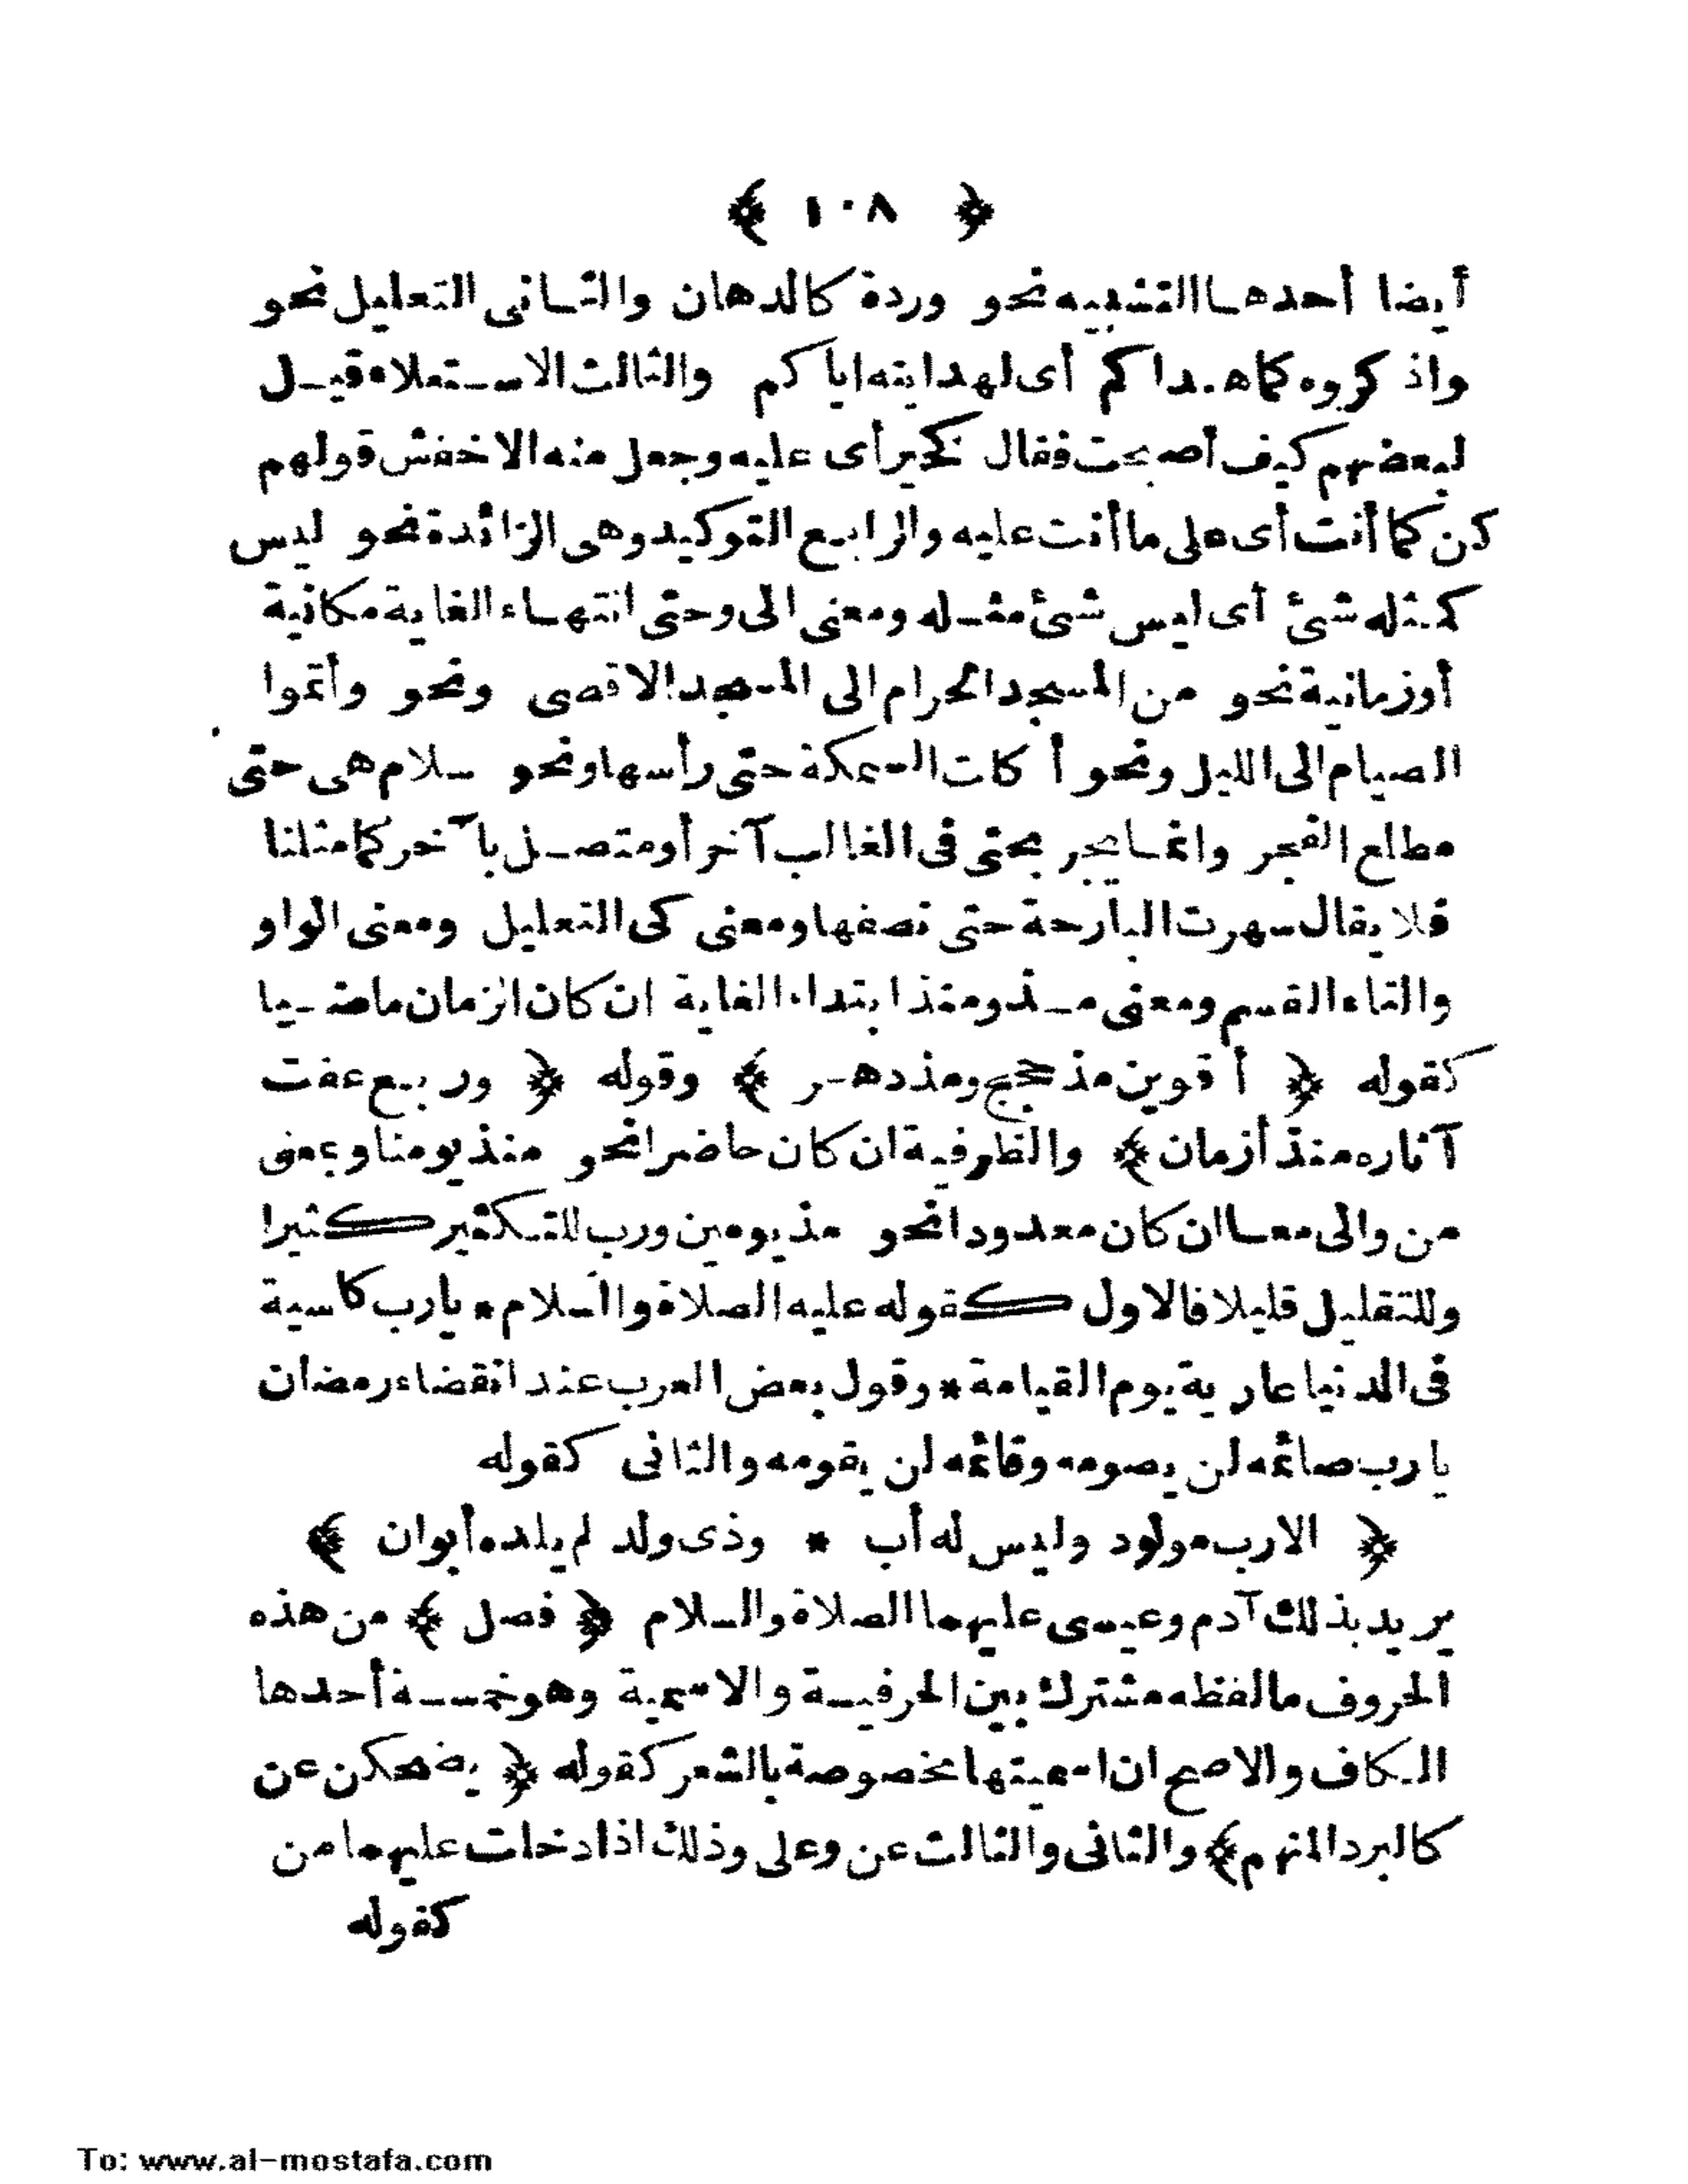 ﴿ ١٠٨ ﴾
أيضا أحدها التشبيه نحو وردة كالدهان والثانى التعليل نحو
واذكروه كما هداكم أى لهدايته اياكم والثالث الاستعلاء قيل
لبعضهم كيف أصبحت فقال كخير أى عليه وجعل منه الاخفش قولهم
كن كما أنت أى على ما أنت عليه والرابع التوكيد وهى الزائدة نحو ليس
كمثله شئ أى ليس شئ مثله ومعنى الى وحتى انتهاء الغاية مكانية
أوزمانية نحو من المسجد الحرام الى المسجد الاقصى ونحو وأتموا
الصيام الى الليل ونحو أكلت السمكة حتى رأسها ونحو سلام هى حتى
مطلع الفجر وانما يجر بحتى فى الغالب آخر أومتصل بآخر كما مثلنا
فلا يقال سهرت البارحة حتى نصفها ومعنى كى التعليل ومعنى الواو
والتاء القسم ومعنى مذ ومنذ ابتداء الغاية ان كان الزمان ماضيا
كقوله ﴿ أقوين مذ حجج ومذ دهر ﴾ وقوله ﴿ وربع عفت
آثاره منذ أزمان ﴾ والظرفية ان كان حاضرا نحو منذ يومنا وبمعنى
من والى معا ان كان معدودا نحو مذ يومين ورب للتكثير كثيرا
وللتقليل قليلا فالاول كقوله عليه الصلاة والسلام * يارب كاسية
فى الدنيا عارية يوم القيامة * وقول بعض العرب عند انقضاء رمضان
يارب صائمه لن يصومه وقائمه لن يقومه والثانى كقوله
﴿ الارب مولود وليس له أب * وذى ولد لم يلده أبوان ﴾
يريد بذلك آدم وعيسى عليهما الصلاة والسلام ﴿ فصل ﴾ من هذه
الحروف مالفظه مشترك بين الحرفية والاسمية وهو خمسة أحدها
الكاف والاصح ان اسميتها مخصوصة بالشعر كقوله ﴿ يضحكن عن
كالبرد المنهم ﴾ والثانى والثالث عن وعلى وذلك اذا دخلت عليهما من
كقوله
To: www.al-mostafa.com